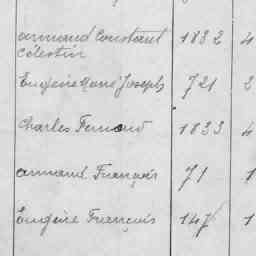 Armand Constant 1832 4
Célestin
Eugène René Joseph 721 2
Charles Fernand 1833 4
Armand François 71 1
Eugène François 147 1